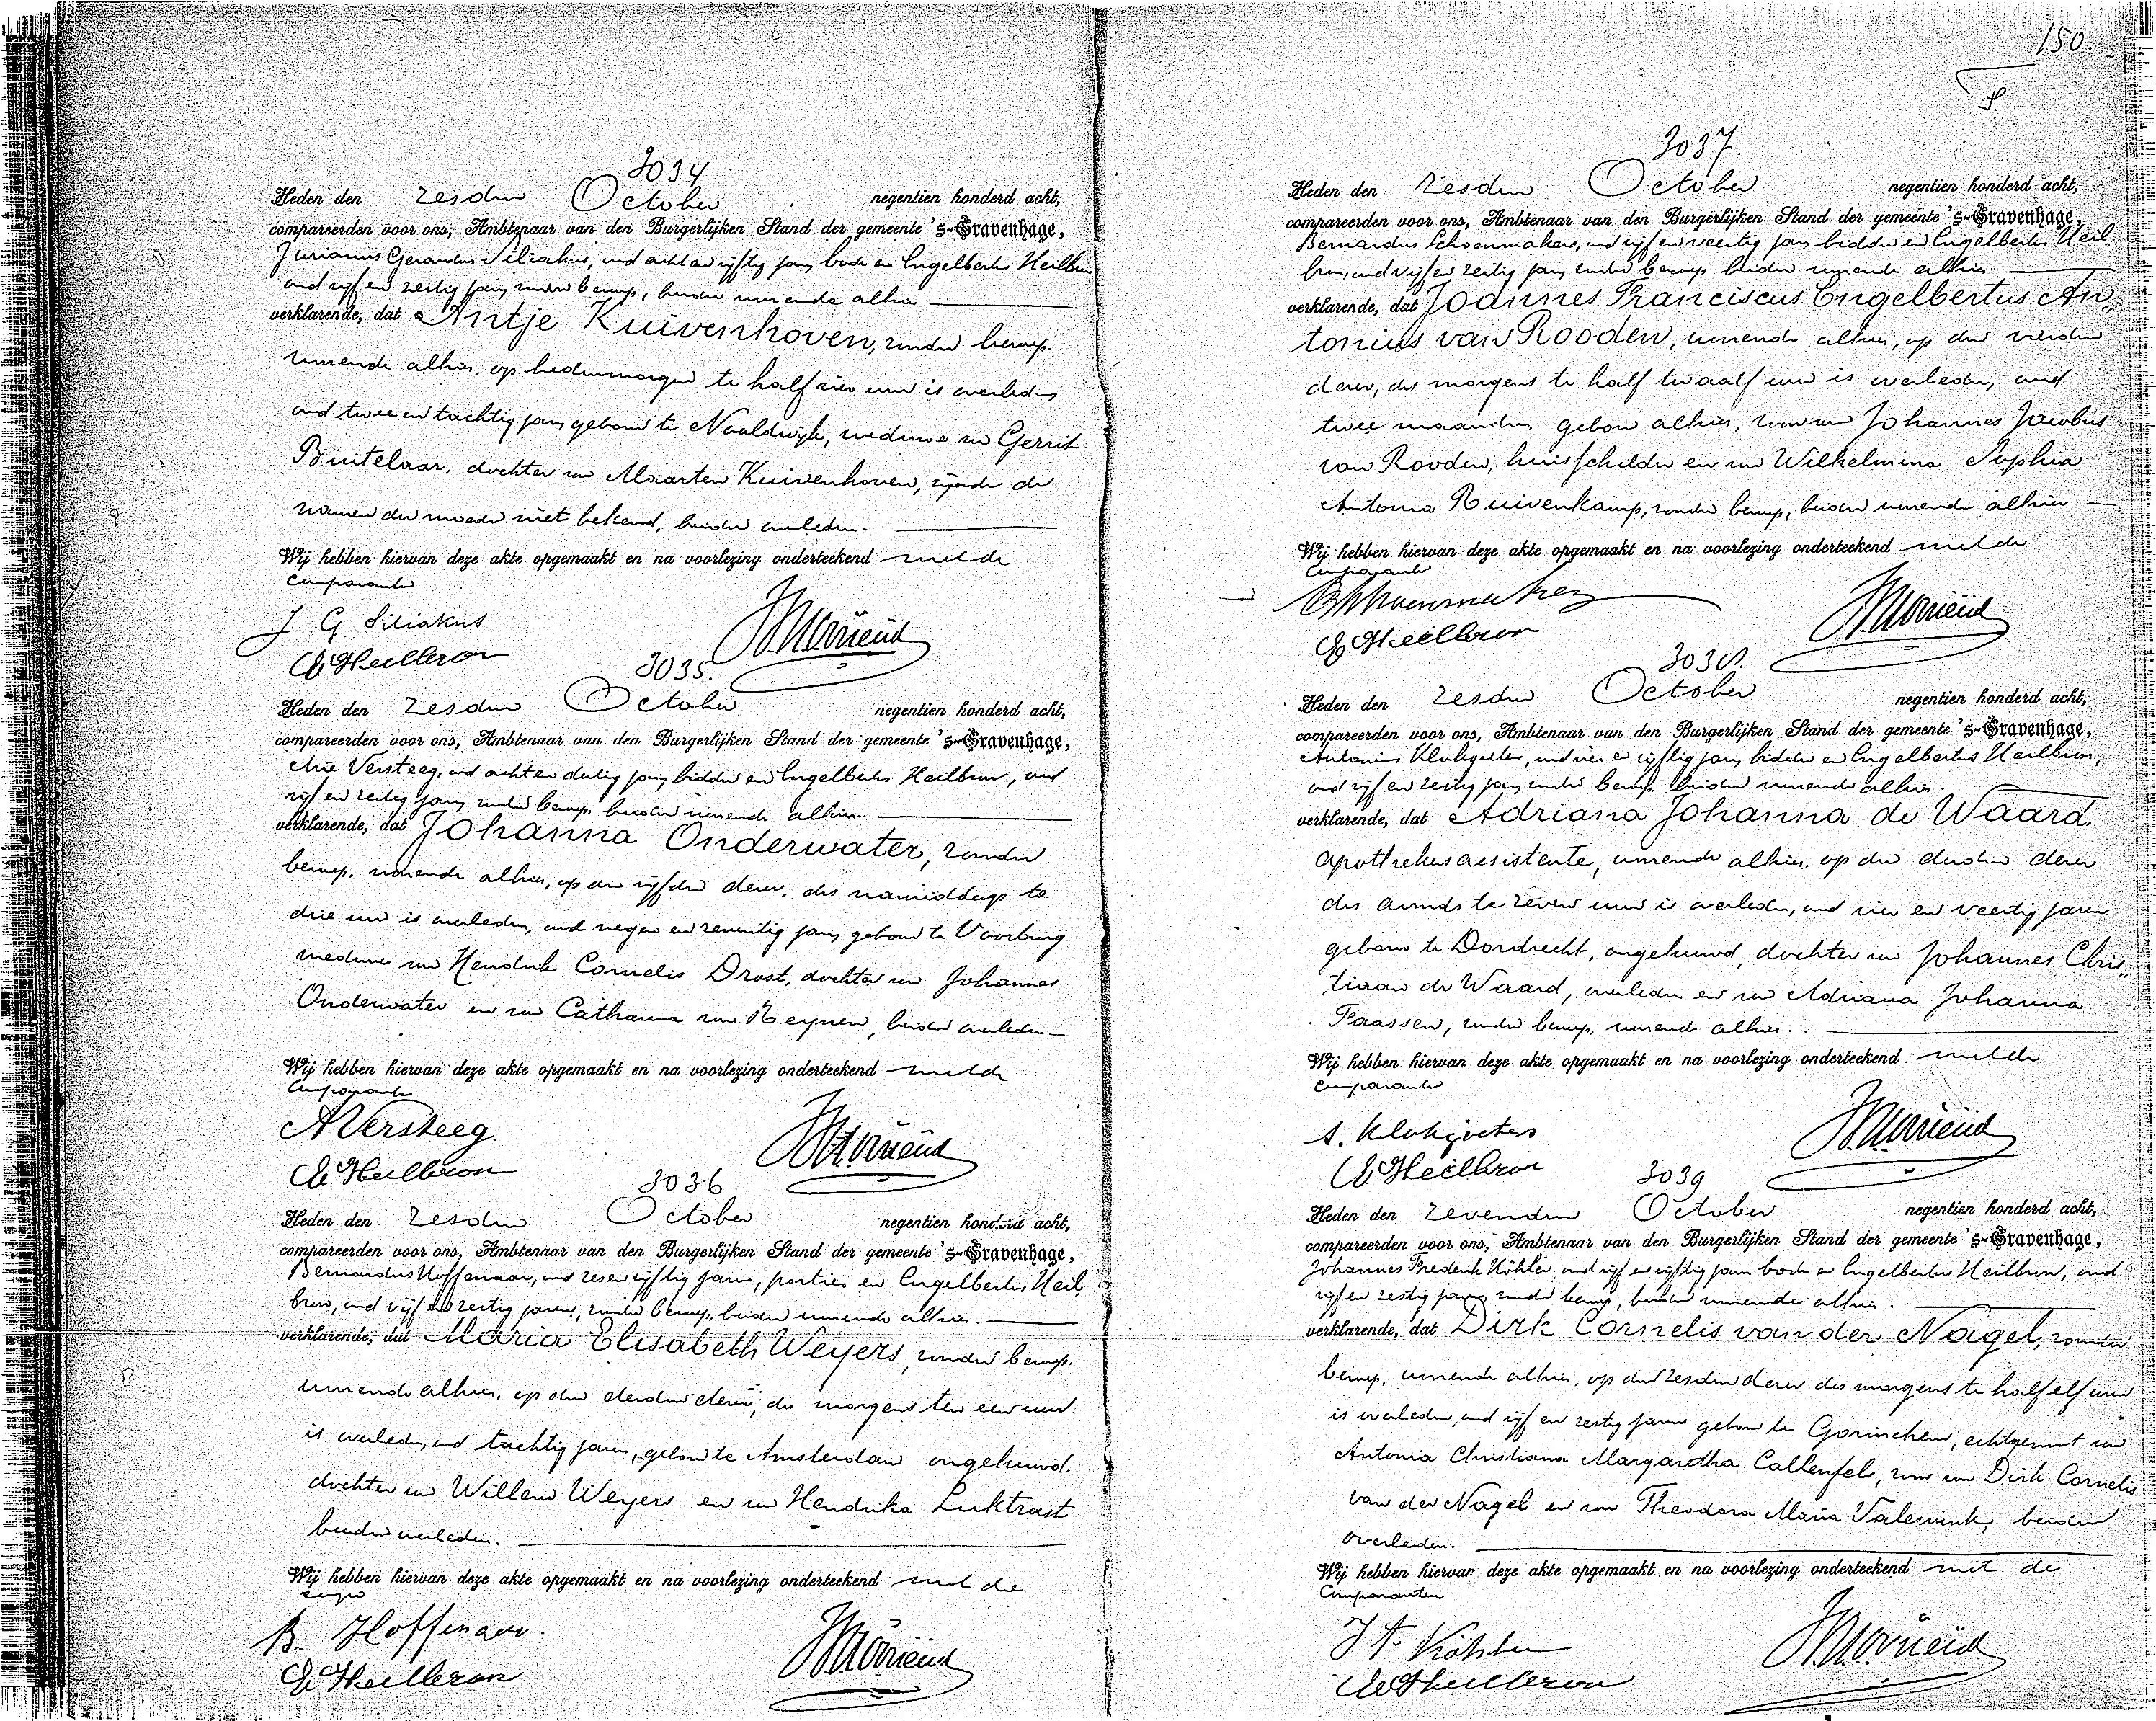 150
3034
Heden den zesden October negentien honderd acht,
compareerden voor ons, Ambtenaar van den Burgerlijken Stand der gemeente 's-Gravenhage,
Jurianus Gerardus Siliakus, oud acht en vijftig jaar, bode en Engelbertus Heilbron
oud vijf en zestig jaar, zonder beroep, beiden wonende alhier
verklarende, dat Antje Kuivenhoven, zonder beroep.
wonende alhier, op hedenmorgen te half vier ure is overleden
oud twee en tachtig jaar, geboren te Naaldwijk, weduwe van Gerrit
Buitelaar, dochter van Maarten Kuivenhoven, zijnde de
namen der moeder niet bekend, beiden overleden.
Wij hebben hiervan deze akte opgemaakt en na voorlezing onderteekend met de
comparanten
J G Siliakus
E Heilbron
3035.
Heden den zesden October negentien honderd acht,
compareerden voor ons, Ambtenaar van den Burgerlijken Stand der gemeente 's-Gravenhage,
Arie Versteeg, oud acht en dertig jaar, bidder en Engelbertus Heilbron, oud
vijf en zestig jaar, zonder beroep, beiden wonende alhier.
verklarende, dat Johanna Onderwater, zonder
beroep, wonende alhier, op den vijfden dezer, des namiddags te
drie ure is overleden, oud negen en zeventig jaar, geboren te Voorburg
weduwe van Hendrik Cornelis Drost, dochter van Johannes
Onderwater en van Catharina van Reynen, beiden overleden
Wij hebben hiervan deze akte opgemaakt en na voorlezing onderteekend met de
comparanten
A Versteeg.
E Heilbron
3036
Heden den zesden October negentien honderd acht,
compareerden voor ons, Ambtenaar van den Burgerlijken Stand der gemeente 's-Gravenhage,
Bernardus Hoffenaar, oud zes en vijftig jaren, portier en Engelbertus Heil
bron, oud vijf en zestig jaren, zonder beroep, beiden wonende alhier.
verklarende, dat Maria Elisabeth Weyers, zonder beroep.
wonende alhier, op den derden dezer, des morgens ten een ure
is overleden, oud tachtig jaren, geboren te Amsterdam ongehuwd.
dochter van Willem Weyers en van Hendrika Luktrost
beiden overleden.
Wij hebben hiervan deze akte opgemaakt en na voorlezing onderteekend met de
comp
B. Hoffenaar.
E Heilbron
3037.
Heden den zesden October negentien honderd acht,
compareerden voor ons, Ambtenaar van den Burgerlijken Stand der gemeente 's-Gravenhage,
Bernardus Schoenmakers, oud vijf en veertig jaar, bidder en Engelbertus Heil
bron, oud vijf en zestig jaar, zonder beroep beiden wonende alhier
verklarende, dat Joannes Franciscus Engelbertus An„
tonius van Rooden, wonende alhier, op den vierden
dezer, des morgens te half twaalf ure is overleden, oud
twee maanden, geboren alhier, zoon van Johannes Jacobus
van Rooden, huisschilder en van Wilhelmina Sophia
Antonia Ruivenkamp, zonder beroep, beiden wonende alhier
Wij hebben hiervan deze akte opgemaakt en na voorlezing onderteekend met de
comparanten
BSchoenmakers
E Heilbron
3038.
Heden den zesden October negentien honderd acht,
compareerden voor ons, Ambtenaar van den Burgerlijken Stand der gemeente 's-Gravenhage,
Antonius Klokgieters, oud vier en vijftig jaar, bidder en Engelbertus Heilbron,
oud vijf en zestig jaar, zonder beroep, beiden wonende alhier.
verklarende, dat Adriana Johanna de Waard,
apothekersassistente, wonende alhier, op den derden dezer
des avonds te zeven ure is overleden, oud vier en veertig jaren
geboren te Dordrecht, ongehuwd, dochter van Johannes Chris„
tiaan de Waard, overleden en van Adriana Johanna
Faassen, zonder beroep, wonende alhier.
Wij hebben hiervan deze akte opgemaakt en na voorlezing onderteekend met de
comparanten
A. Klokgieters
E Heilbron
3039
Heden den zevenden October negentien honderd acht,
compareerden voor ons, Ambtenaar van den Burgerlijken Stand der gemeente 's-Gravenhage,
Johannes Frederik Köhler, oud vijf en vijftig jaren bode en Engelbertus Heilbron, oud
vijf en zestig jaren, zonder beroep, beiden wonende alhier.
verklarende, dat Dirk Cornelis van der Nagel, zonder
beroep, wonende alhier, op den zesden dezer des morgens te half elf ure
is overleden, oud vijf en zestig jaren geboren te Gorinchem, echtgenoot van
Antonia Christiana Margaretha Callenfels, zoon van Dirk Cornelis
van der Nagel en van Theodora Maria Valewink, beiden
overleden.
Wij hebben hiervan deze akte opgemaakt en na voorlezing onderteekend met de
Comparanten
J F Köhler
E Heilbron